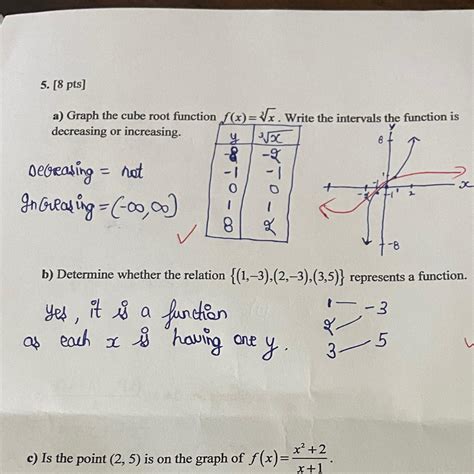 5. [8 pts]
a) Graph the cube root function f(x) = ∛x. Write the intervals the function is
decreasing or increasing.
Decreasing = not
Increasing = (-∞, ∞)
y ∛x
-8 -2
-1 -1
0 0
1 1
8 2
y
8
-1
1 2
x
-8
b) Determine whether the relation {(1,−3),(2,−3),(3,5)} represents a function.
Yes, it is a function
as each x is having one y.
1 — -3
2
3 — 5
c) Is the point (2, 5) is on the graph of f(x) = x²+2 / x+1.